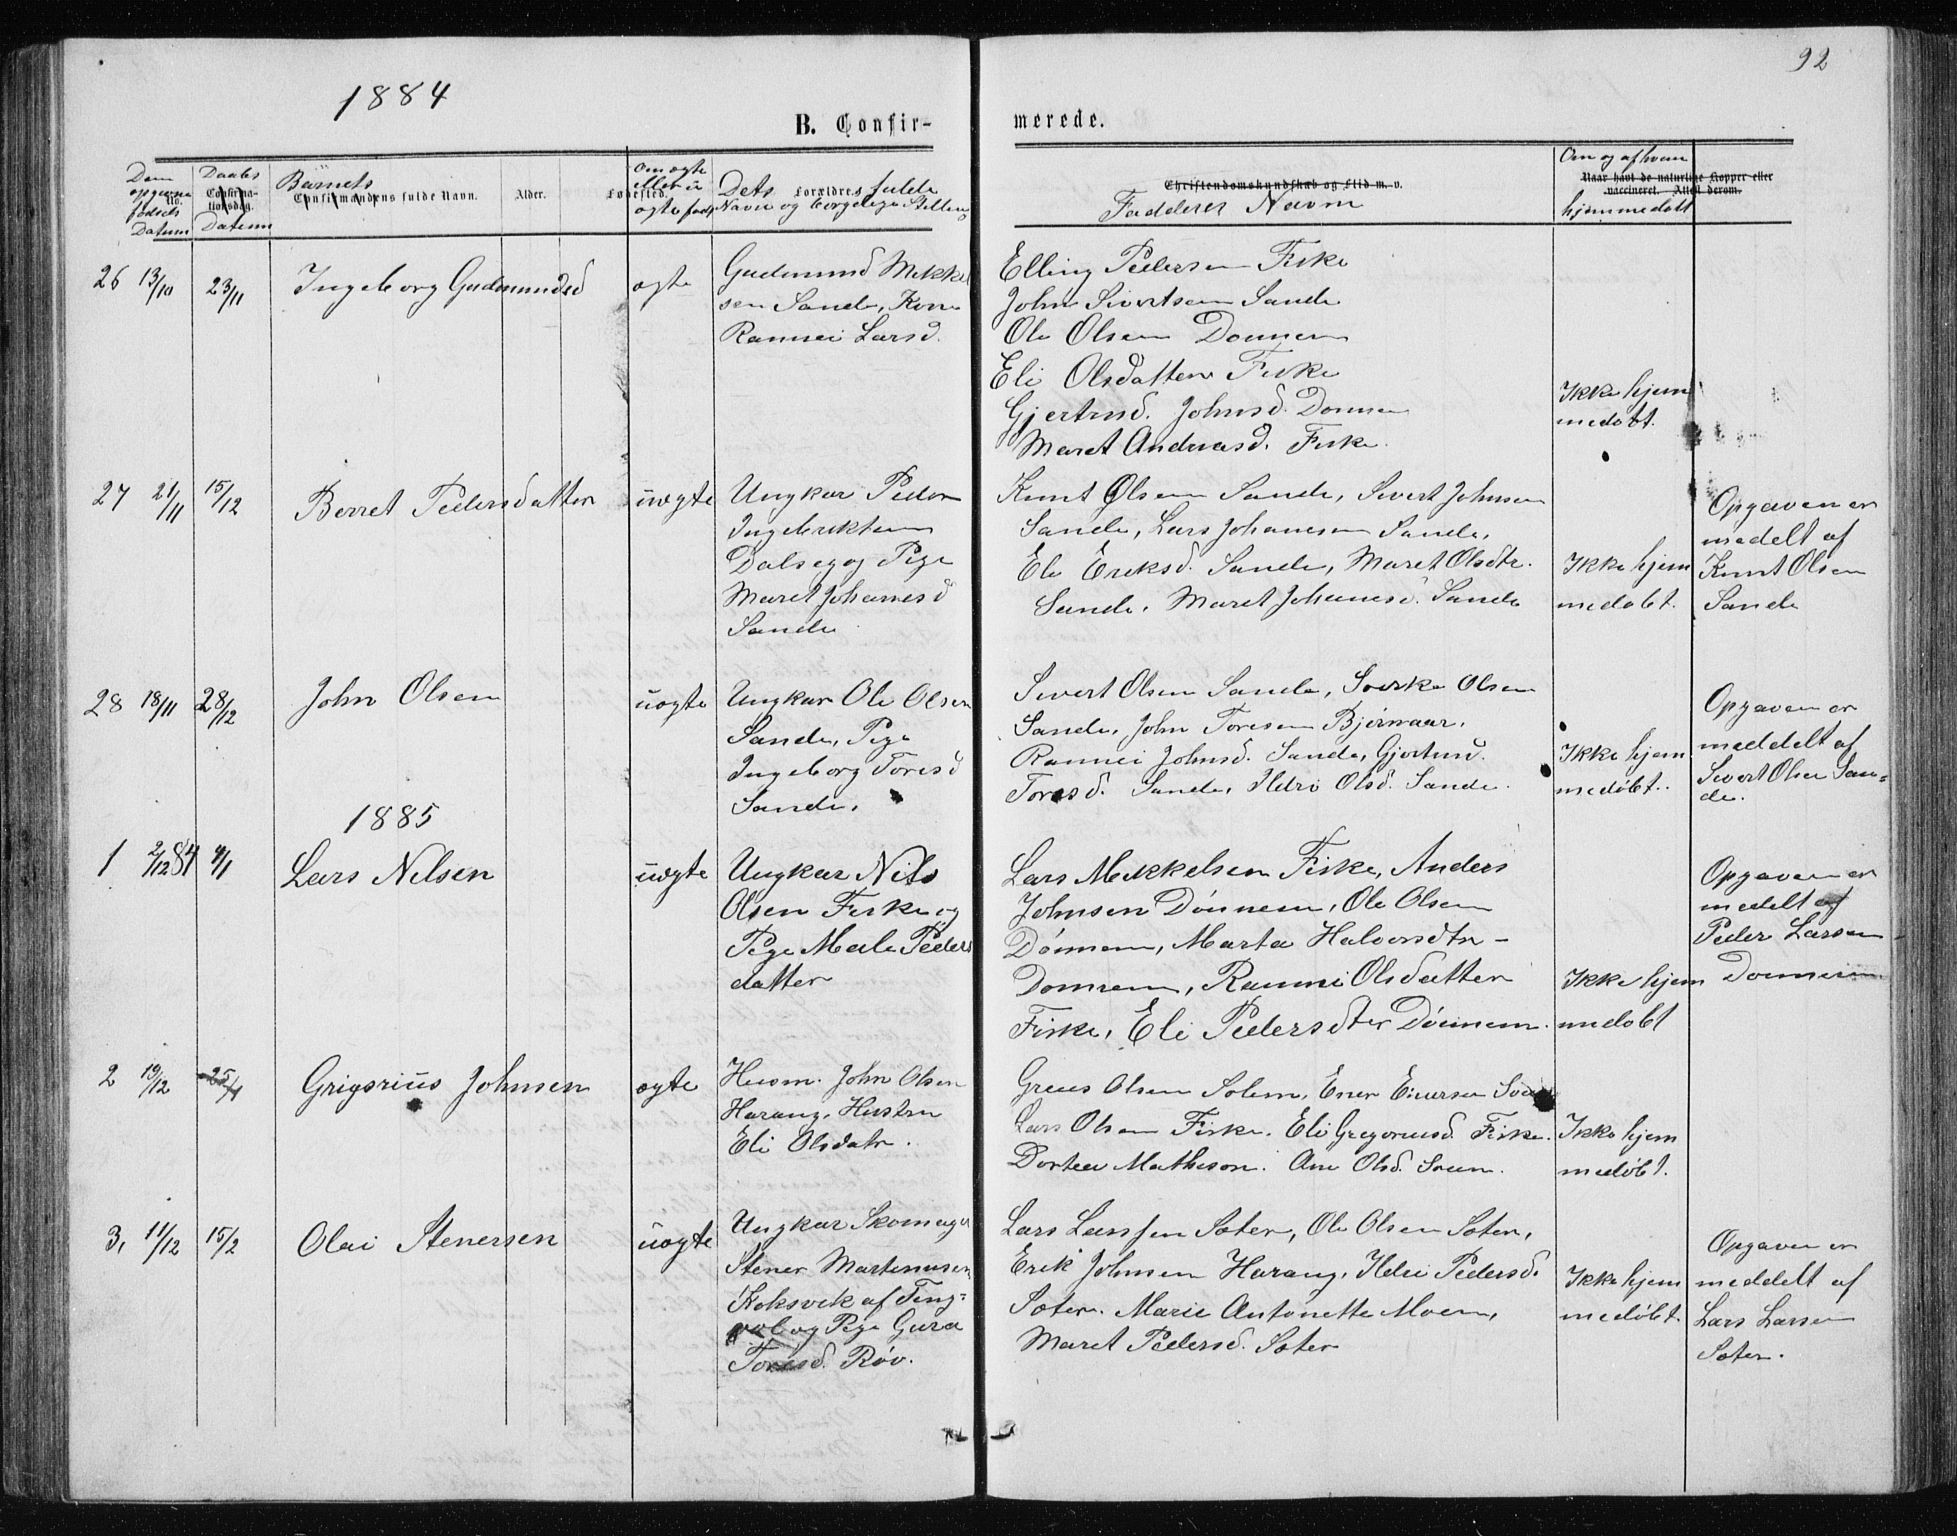 92
1884
B. Confir-
merede.
Den opgivne fødsels Datum
Daabs Datum
Barnets
Confirmandens fulde Navn.
Alder.
Om ægte eller uægte født
Fødested.
Dets Forældres fulde Navn og borgelige Stilling
Christendomskundskab og Flid m. v.
Fadderes Navn
Om og af hvem hjemmedøbt
Naar havt de naturlige Kopper eller vaccineret. Attest derom.
26 13/10 23/11 Ingeborg Gudmundsd ægte
Gudmund Mekkel
sen Sande, Kone
Rannei Larsd.
Elling Pedersen Fiske
John Sivertsen Sande
Ole Olsen Dønnem
Eli Olsdatter Fiske
Gjertrud. Johnsd. Dønnem
Maret Andreasd. Fiske.
Ikke hjem
medøbt.
27 21/11 15/12 Berret Pedersdatter uægte
Ungkar Peder
Ingebrektsen
Dalseg og Pige
Maret Johanesd
Sande
Knut Olsen Sande, Sivert Johnsen
Sande, Lars Johannesen Sande,
Eli Eriksd. Sande, Maret Olsdtr.
Sande, Maret Johanesd. Sande
Ikke hjem
medøbt.
Opgaven er
medelt af
Knut Olsen
Sande
28 18/11 28/12 John Olsen uægte
Ungkar Ole Olsen
Sande, Pige
Ingeborg Toresd
Sande.
Sivert Olsen Sande, Sverke Olsen
Sande, John Toresen Bjørnaar,
Rannei Johnsd. Sande, Gjertrud.
Toresd. Sande, Ildri Olsd. Sande.
Ikke hjem
medøbt.
Opgaven er
meddelt af
Sivert Olsen San=
de.
1885
1 2/12 84 4/1 Lars Nilsen uægte
Ungkar Nils
Olsen Fiske og
Pige Male Peders
datter
Lars Mekkelsen Fiske, Anders
Johnsen Dønnem, Ole Olsen
Dønnem, Marta Halvorsdtr -
Dønnem, Rannei Olsdatter
Fiske, Eli Pedersdter Dønnem.
Ikke hjem
medøbt
Opgaven er
medelt af
Peder Larsen
Dønnem
2 19/12 25/1 Grigorius Johnsen ægte
Husm. John Olsen
Harang, Hustru
Eli Olsdatr.
Greus Olsen Solem, Ener Enersen
Lars Olsen Fiske. Eli Gregoriusd. Fiske.
Dortea Matheson. Ane Olsd.
Ikke hjem
medøbt.
3, 11/12 15/2 Olai Stenersen uægte
Ungkar Skomager
Stener Martinusen
Koksvik af Ting=
vol og Pige Guro
Toresd. Røv.
Lars Larssen Sæter, Ole Olsen Sæter,
Erik Johnsen Harang, Ildri Pedersd.
Sæter. Marie Antonette Moen,
Maret Pedersd. Sæter
Ikke hjem
medøbt.
Opgaven er
meddelt af
Lars Larsen
Sæter.